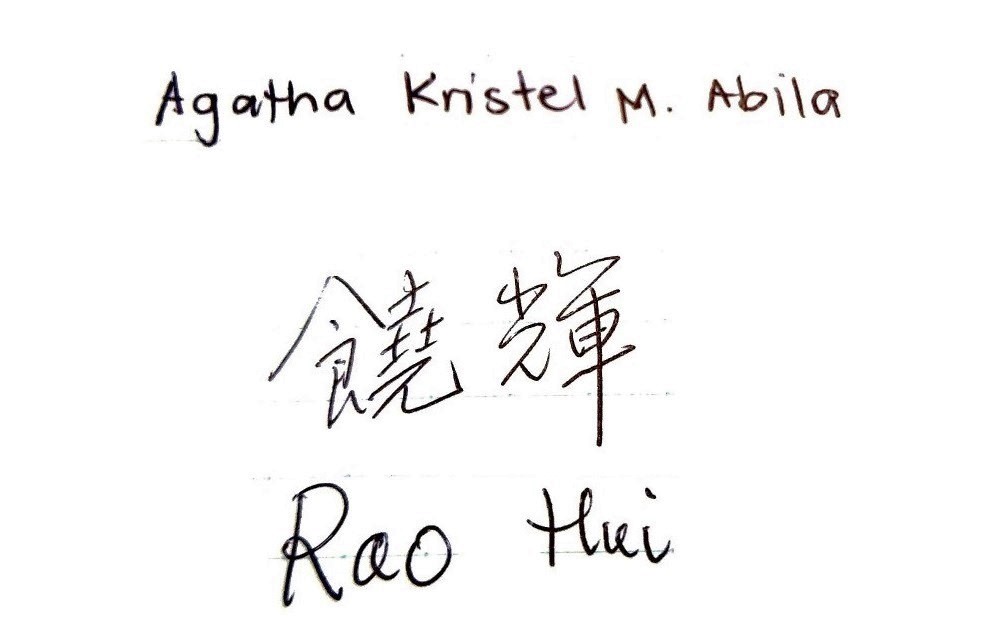 Agatha Kristel M. Abila
饒輝
Rao Hui